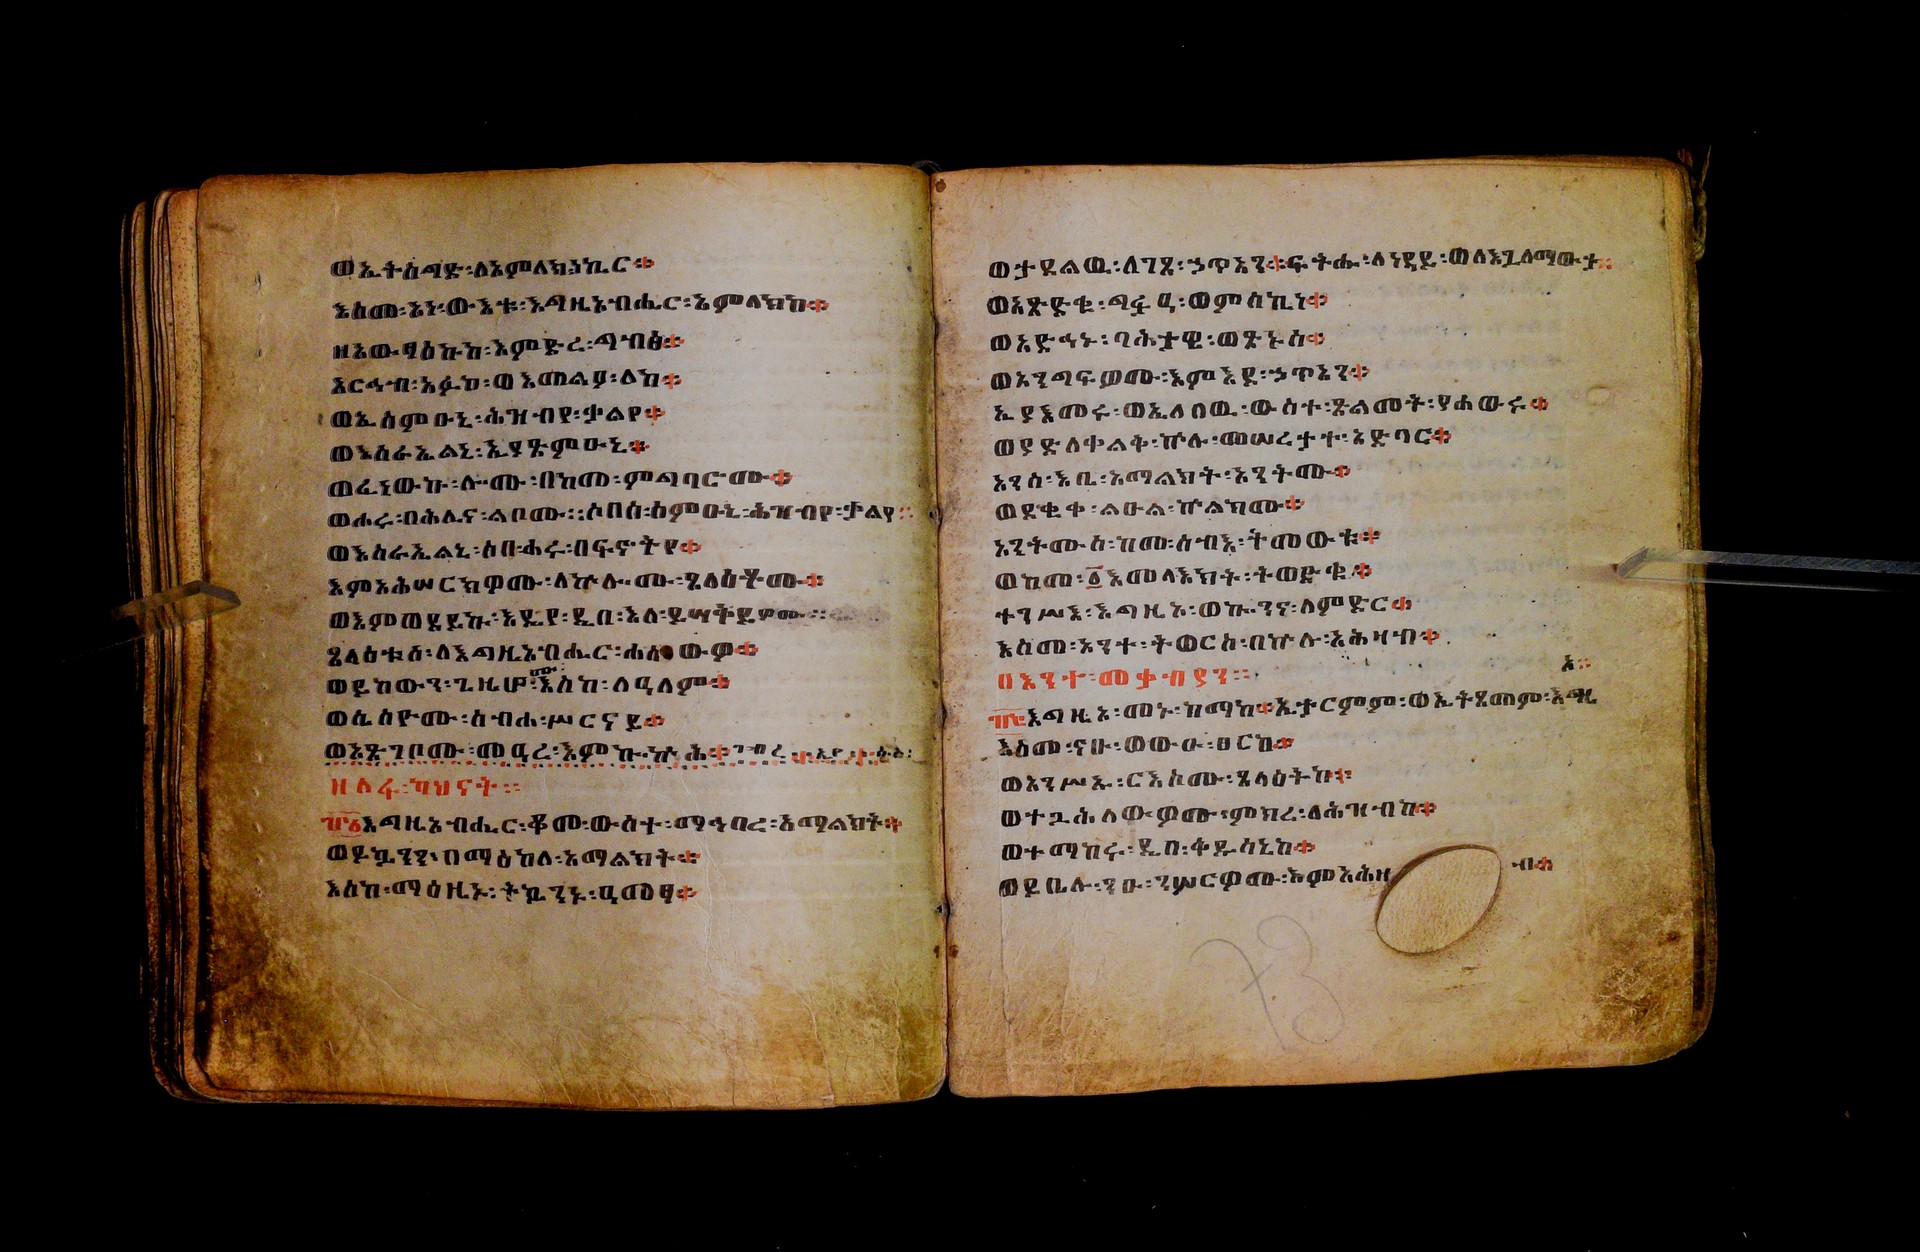 ወኢትስግድ፡ለአምላክ፡ነኪር።
እስመ፡አነ፡ውእቱ፡እግዚአብሔር፡አምላክከ።
ዘአውፃእኩከ፡እምድረ፡ግብፅ።
አርኅብ፡አፉከ፡ወእመልዖ፡ለከ።
ወኢሰምዑኒ፡ሕዝብየ፡ቃልየ።
ወእስራኤልኒ፡ኢያጽምዑኒ።
ወፈነውኩ፡ሎሙ፡በከመ፡ምግባሮሙ።
ወሐሩ፡በሕሊና፡ልቦሙ፡፡ሶበሰ፡ሰምዑኒ፡ሕዝብየ፡ቃልየ።
ወእስራኤልኒ፡ሶበ፡ሐሩ፡በፍኖትየ።
እምአሕሠርክዎሙ፡ለኵሎሙ፡ጸላእቶሙ።
ወእምወደይኩ፡እዴየ፡ዲበ፡እለ፡ይሣቅይዎሙ።
ጸላእቱሰ፡ለእግዚአብሔር፡ሐሰውዎ።
ወይከውን፡ጊዜሆሙ፡እስከ፡ለዓለም።
ወሲሰዮሙ፡ስብሐ፡ሥርናይ።
ወአጽገቦሙ፡መዓረ፡እምኰኵሕ።
ዘሌዊ፡ካህናት።
፹፩እግዚአብሔር፡ቆመ፡ውስተ፡ማኅበረ፡አማልክት።
ወይኴንን፡በማእከለ፡አማልክት።
እስከ፡ማእዜኑ፡ትኴንኑ፡ዓመፃ።
ወታደልዉ፡ለገጸ፡ኃጥአን።ፍትሑ፡ለነዳይ፡ወለእጓለማውታ።
ወአጽድቁ፡ግፉዓ፡ወምስኪነ።
ወአድኅኑ፡ባሕታዊ፡ወጽኑስ።
ወአንግፍዎሙ፡እምእደ፡ኃጥአን።
ኢያእመሩ፡ወኢለበዉ፡ውስተ፡ጽልመት፡ያሐውሩ።
ወያድለቀልቅ፡ኵሉ፡መሠረታተ፡አድባር።
አንሰ፡እቤ፡አማልክት፡አንትሙ።
ወደቂቀ፡ልዑል፡ኵልክሙ።
አንትሙሰ፡ከመ፡ሰብእ፡ትመውቱ።
ወከመ፡፩እመላእክት፡ትወድቁ።
ተንሥእ፡እግዚኦ፡ወኰንና፡ለምድር።
እስመ፡አንተ፡ትወርስ፡በኵሉ፡አሕዛብ።
በእንተ፡መቃብያን።
እግዚኦ፡መኑ፡ከማከ።ኢታርምም፡ወኢትጸመም፡እግዚ
ኦ።
እስመ፡ናሁ፡ወውዑ፡ፀርከ።
ወአንሥኡ፡ርእሶሙ፡ጸላእትከ።
ወተጓሕለውዎሙ፡ምክረ፡ለሕዝብከ።
ወተማከሩ፡ዲበ፡ቅዱሳኒከ።
ወይቤሉ፡ንዑ፡ንሠርዎሙ፡እምአሕዛ
ብ።
73